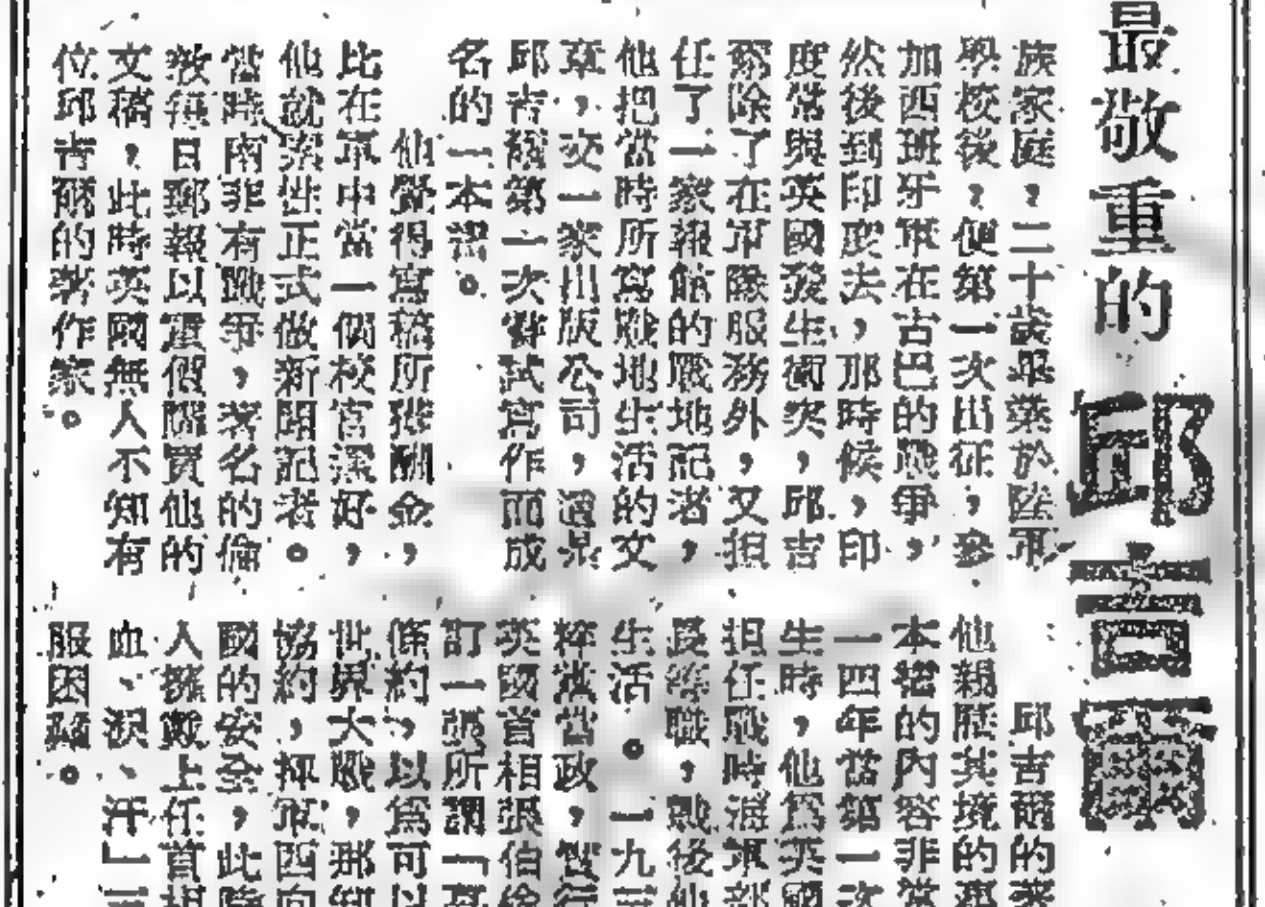 最敬重的
邱吉爾
族家庭,二十歲畢業於陸軍
學校後,便第一次出征,參
加西班牙軍在古巴的戰爭,
然後到印度去,那時候,印
度常與英國發生衝突,邱吉
爾除了在軍隊服務外,又担
任了一家報館的戰地記者,
他把當時所寫戰地生活的文
章,交一家出版公司,這是
邱吉爾第一次嘗試寫作而成
名的一本書。
他覺得寫稿所獲酬金,
比在軍中當一個校官還好,
他就索性正式做新聞記者。
當時南非有戰爭,著名的倫
敦每日郵報以重價購買他的
文稿,此時英國無人不知有
位邱吉爾的著作家。
邱吉爾的著
他親歷其境的
本書的內容非常
一四年當第一次
生時,他為英國
担任戰時海軍部
長等職,戰後他
生活。一九三
粹黨當政,
英國首相張伯倫
訂一張所謂「
條約,以為可以
世界大戰,那知
協約,揮軍四向
國的安全,此時
人擁戴上任首相
血、淚、汗」三
服困難。